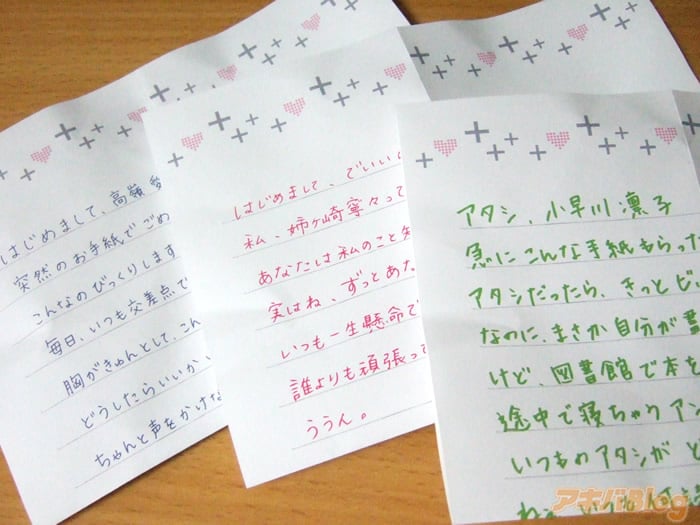 はじめまして、高嶺愛
突然のお手紙でごめ
こんなのびっくりします
毎日、いつも交差点で
胸がきゅんとして、こん
どうしたらいいか
ちゃんと声をかけな
はじめまして、でいい
私、姉ヶ崎寧々って
あなたは私のこと知
実はね、ずっとあな
いつも一生懸命で
誰よりも頑張って
ううん。
アタシ、小早川凛子
急にこんな手紙もらった
アタシだったら、きっとビ
なのに、まさか自分が書
けど、図書館で本を
途中で寝ちゃりアン
いつものアタシがど
アキバBlog